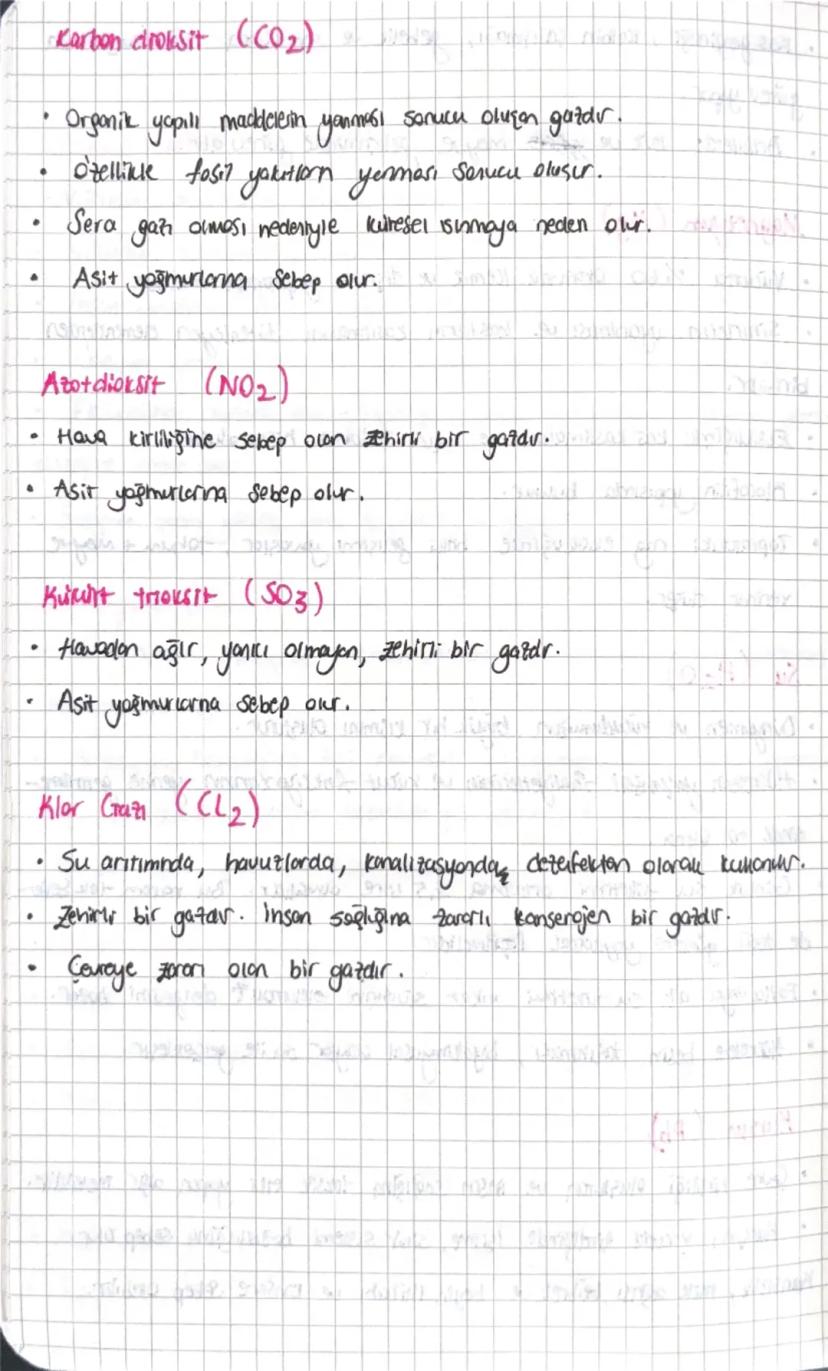 Karbon dioksit (CO2)
• Organik yapılı maddelerin yanması sonucu oluşan gazdır.
• Özellikle fosil yakıtların yanması sonucu oluşur.
• Sera gazı olması nedeniyle küresel ısınmaya neden olur.
• Asit yağmurlarına sebep olur.
Azotdioksit (NO2)
• Hava kirliliğine sebep olan zehirli bir gazdır.
• Asit yağmurlarına sebep olur.
Kükürt trioksit (SO3)
• Havadan ağır, yanıcı olmayan, zehirli bir gazdır.
• Asit yağmurlarına sebep olur.
Klor Gazı (CL2)
• Su arıtımında, havuzlarda, kanalizasyonda, dezenfektan olarak kullanılır.
• Zehirli bir gazdır. İnsan sağlığına zararlı konserojen bir gazdır.
• Çevreye zararı olan bir gazdır.